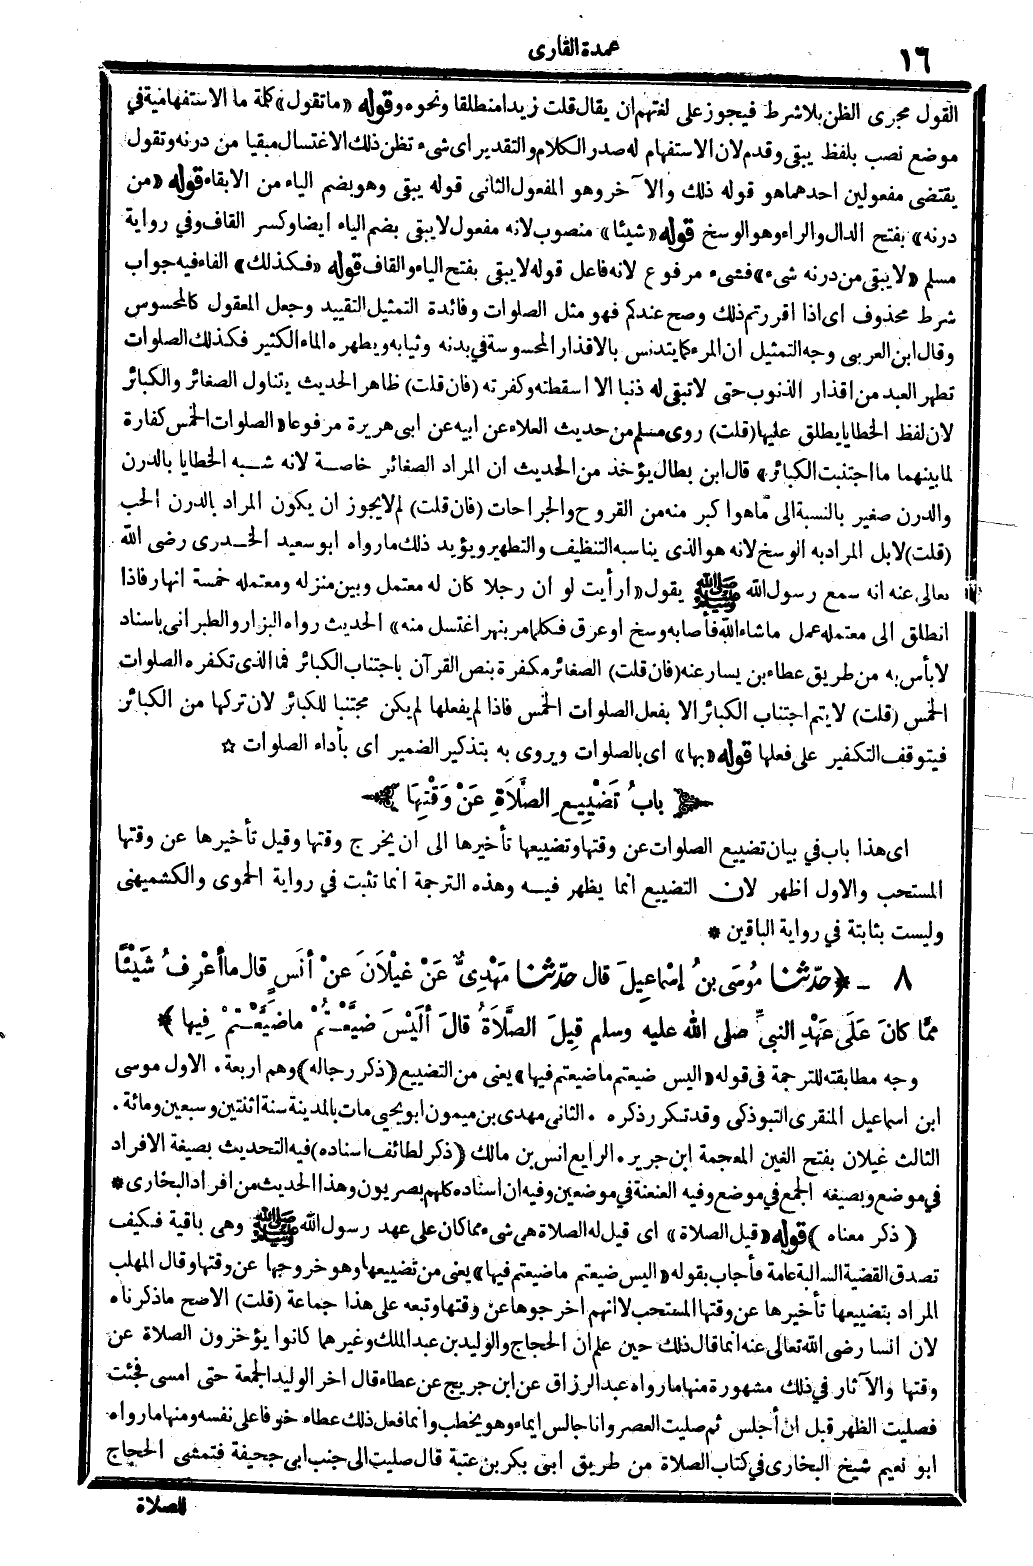 ١٦
عمدة القارى
القول مجرى الظن بلا شرط فيجوز على لغتهم ان يقال قلت زيدا منطلقا ونحوه وقوله «ما تقول» كلمة ما الاستفهامية في
موضع نصب بلفظ يبقى وقدم لان الاستفهام له صدر الكلام والتقدير اى شىء تظن ذلك الاغتسال مبقيا من درنه وتقول
يقتضى مفعولين احدهما هو قوله ذلك والآخر وهو المفعول الثانى قوله يبقى وهو بضم الياء من الابقاء قوله «من
درنه» بفتح الدال والراء وهو الوسخ قوله «شيئا» منصوب لانه مفعول لا يبقى بضم الياء ايضا وكسر القاف وفي رواية
مسلم «لا يبقى من درنه شىء» فشىء مرفوع لانه فاعل قوله لا يبقى بفتح الياء والقاف قوله «فكذلك» الفاء فيه جواب
شرط محذوف اى اذا اقررتم ذلك وصح عندكم فهو مثل الصلوات وفائدة التمثيل التقييد وجعل المعقول كالمحسوس
وقال ابن العربى وجه التمثيل ان المرء كما يتدنس بالاقذار المحسوسة في بدنه وثيابه ويطهره الماء الكثير فكذلك الصلوات
تطهر العبد من اقذار الذنوب حتى لا تبقى له ذنبا الا اسقطته وكفرته (فان قلت) ظاهر الحديث يتناول الصغائر والكبائر
لان لفظ الخطايا يطلق عليها (قلت) روى مسلم من حديث العلاء عن ابيه عن ابى هريرة مرفوعا «الصلوات الخمس كفارة
لما بينهما ما اجتنبت الكبائر» قال ابن بطال يؤخذ من الحديث ان المراد الصغائر خاصة لانه شبه الخطايا بالدرن
والدرن صغير بالنسبة الى ما هوا كبر منه من القروح والجراحات (فان قلت) لم لا يجوز ان يكون المراد بالدرن الحب
(قلت) لا بل المراد به الوسخ لانه هو الذى يناسبه التنظيف والتطهير ويؤيد ذلك ما رواه ابو سعيد الخدرى رضى الله
تعالى عنه انه سمع رسول الله ﷺ يقول «ارأيت لو ان رجلا كان له معتمل وبين منزله ومعتمله خمسة انهار فاذا
انطلق الى معتمله عمل ما شاء الله فأصابه وسخ او عرق فكلما مر بنهر اغتسل منه» الحديث رواه البزار والطبرانى باسناد
لا بأس به من طريق عطاء بن يسار عنه (فان قلت) الصغائر مكفرة بنص القرآن باجتناب الكبائر فما الذى تكفره الصلوات
الخمس (قلت) لا يتم اجتناب الكبائر الا بفعل الصلوات الخمس فاذا لم يفعلها لم يكن مجتنبا للكبائر لان تركها من الكبائر
فيتوقف التكفير على فعلها قوله «بها» اى بالصلوات ويروى به بتذكير الضمير اى بأداء الصلوات ☆
بابُ تَضْيِيعِ الصَّلَاةِ عَنْ وَقْتِهَا
اى هذا باب في بيان تضييع الصلوات عن وقتها وتضييعها تأخيرها الى ان يخرج وقتها وقيل تأخيرها عن وقتها
المستحب والاول اظهر لان التضييع انما يظهر فيه وهذه الترجمة انما تثبت في رواية الحموى والكشميهنى
وليست بثابتة في رواية الباقين *
٨ ـ ﴿حدّثنا مُوسَى بنُ إسْمَاعِيلَ قال حدّثنا مَهْدِىٌّ عَنْ غَيْلَانَ عَنْ أنَسٍ قال ما أعْرِفُ شَيْئًا
مِمَّا كانَ عَلَى عَهْدِ النبىِّ صلى الله عليه وسلم قِيلَ الصَّلَاةُ قالَ ألَيْسَ ضَيَّعْتُمْ ما ضَيَّعْتُمْ فِيها﴾
وجه مطابقته للترجمة في قوله «اليس ضيعتم ما ضيعتم فيها» يعنى من التضييع (ذكر رجاله) وهم اربعة . الاول موسى
ابن اسماعيل المنقرى التبوذكى وقد تكرر ذكره . الثانى مهدى بن ميمون ابو يحيى مات بالمدينة سنة اثنتين وسبعين ومائة .
الثالث غيلان بفتح الغين المعجمة ابن جرير . الرابع انس بن مالك (ذكر لطائف اسناده) فيه التحديث بصيغة الافراد
في موضع وبصيغه الجمع في موضع وفيه العنعنة في موضعين وفيه ان اسناده كلهم بصريون وهذا الحديث من افراد البخارى *
(ذكر معناه) قوله «قيل الصلاة» اى قيل له الصلاة هى شىء مما كان على عهد رسول الله ﷺ وهى باقية فكيف
تصدق القضية السالبة عامة فأجاب بقوله «اليس ضيعتم ما ضيعتم فيها» يعنى من تضييعها وهو خروجها عن وقتها وقال المهلب
المراد بتضييعها تأخيرها عن وقتها المستحب لا انهم اخرجوها عن وقتها وتبعه على هذا جماعة (قلت) الاصح ما ذكرناه
لان انسا رضى الله تعالى عنه انما قال ذلك حين علم ان الحجاج والوليد بن عبد الملك وغيرهما كانوا يؤخرون الصلاة عن
وقتها والآثار في ذلك مشهورة منها ما رواه عبد الرزاق عن ابن جريج عن عطاء قال اخر الوليد الجمعة حتى امسى فجئت
فصليت الظهر قبل ان أجلس ثم صليت العصر وانا جالس ايماء وهو يخطب وانما فعل ذلك عطاء خوفا على نفسه ومنها ما رواه
ابو نعيم شيخ البخارى في كتاب الصلاة من طريق ابى بكر بن عتبة قال صليت الى جنب ابى جحيفة فتمشى الحجاج
الصلاة